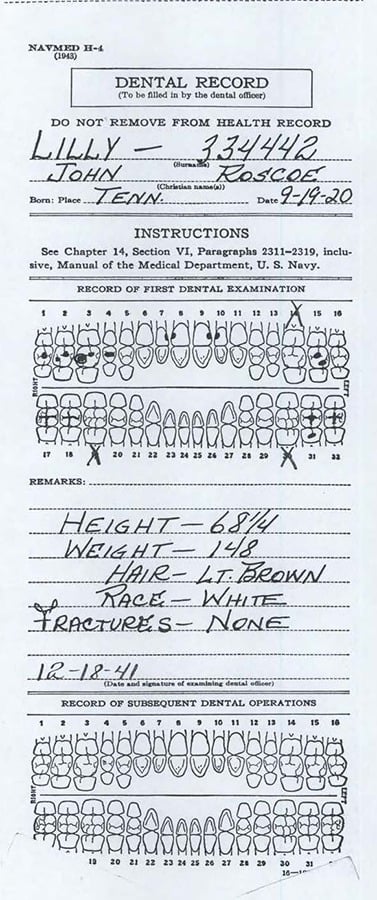 NAVMED H-4
(1943)
DENTAL RECORD
(To be filled in by the dental officer)
DO NOT REMOVE FROM HEALTH RECORD
LILLY — 334442
(Surname)
JOHN ROSCOE
(Christian name(s))
Born: Place TENN. Date 9-19-20
INSTRUCTIONS
See Chapter 14, Section VI, Paragraphs 2311–2319, inclu-
sive, Manual of the Medical Department, U. S. Navy.
RECORD OF FIRST DENTAL EXAMINATION
1 2 3 4 5 6 7 8 9 10 11 12 13 14 15 16
RIGHT LEFT
17 18 19 20 21 22 23 24 25 26 27 28 29 30 31 32
REMARKS:
HEIGHT — 68 1/4
WEIGHT — 148
HAIR — LT. BROWN
RACE — WHITE
FRACTURES — NONE
12-18-41
(Date and signature of examining dental officer)
RECORD OF SUBSEQUENT DENTAL OPERATIONS
1 2 3 4 5 6 7 8 9 10 11 12 13 14 15 16
RIGHT LEFT
19 20 21 22 23 24 25 26 27 28 29 30 31